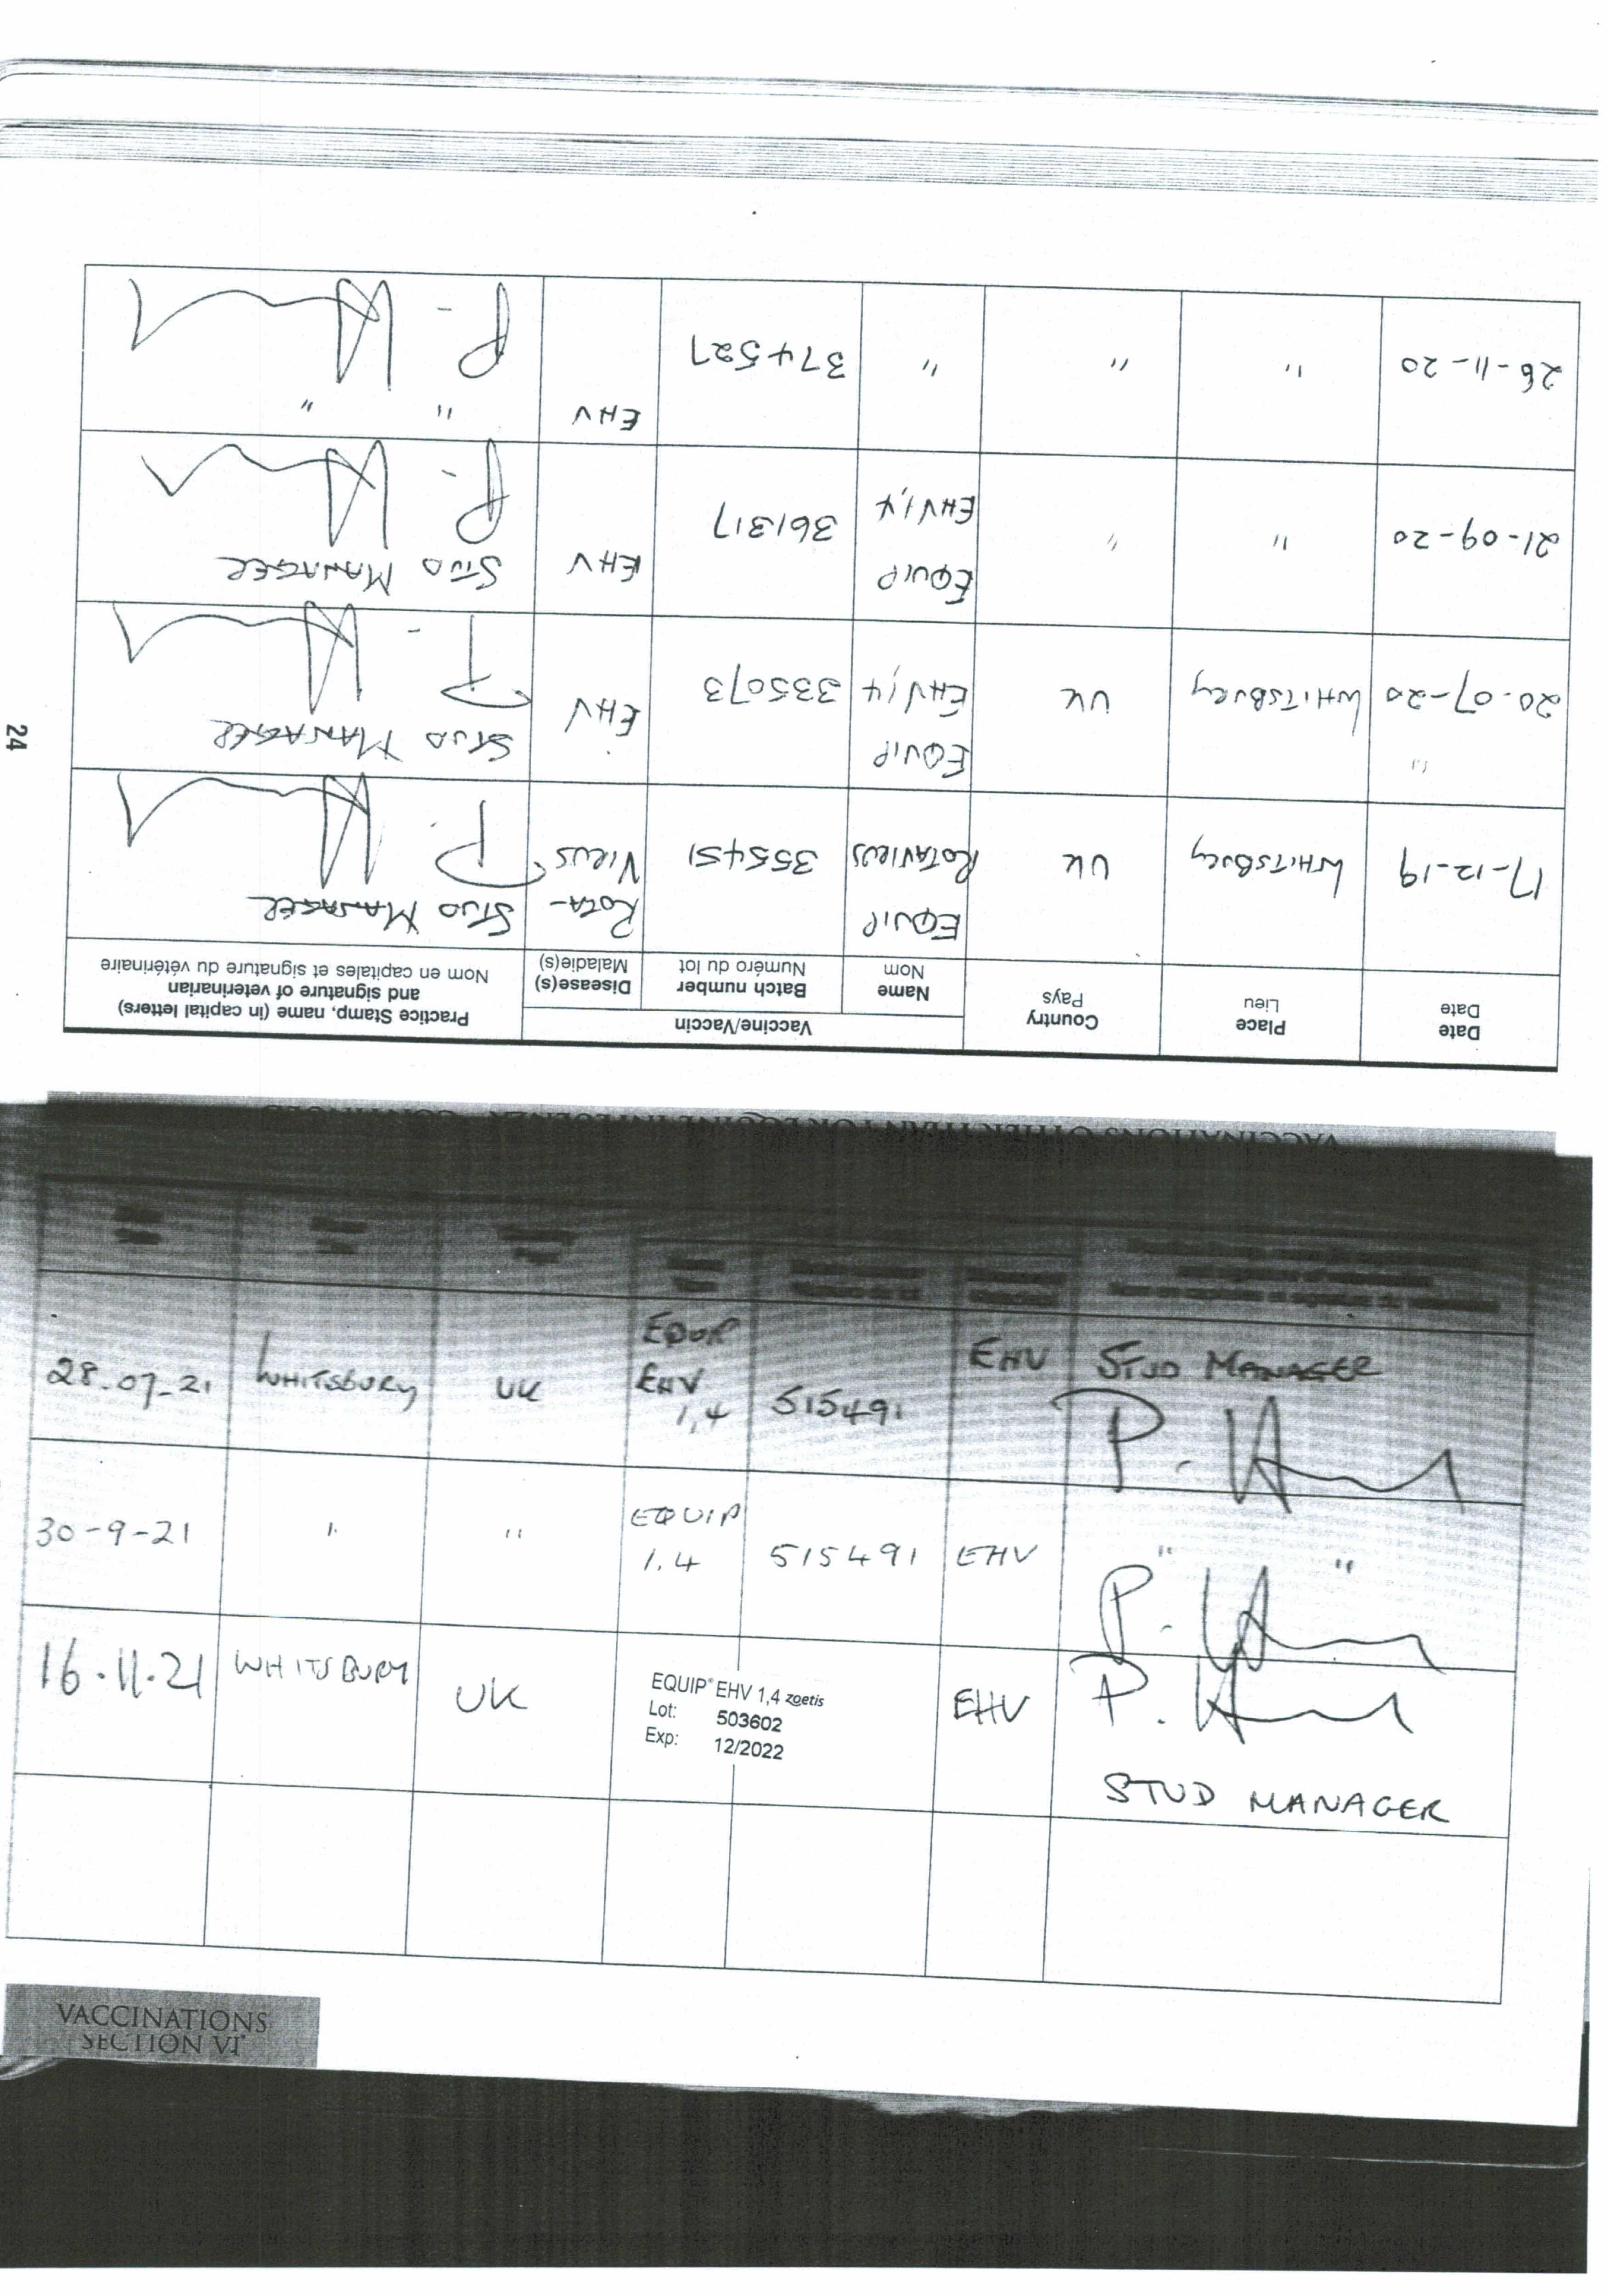 24
VACCINATIONS OTHER THAN FOR EQUINE INFLUENZA - CONTINUED
Date
Date
Place
Lieu
Country
Pays
Vaccine/Vaccin
Name
Nom
Batch number
Numéro du lot
Disease(s)
Maladie(s)
Practice Stamp, name (in capital letters)
and signature of veterinarian
Nom en capitales et signature du vétérinaire
17-12-19 WHITSBURY UK EQUIP ROTAVIRUS 355451 ROTA-VIRUS STUD MANAGER
20-07-20 WHITSBURY UK EQUIP EHV 1,4 335073 EHV STUD MANAGER
21-09-20 " " EQUIP EHV 1,4 361317 EHV STUD MANAGER
26-11-20 " " " 374527 EHV " "
28-07-21 WHITSBURY UK EQUIP EHV 1,4 515491 EHV STUD MANAGER
30-9-21 " " EQUIP 1,4 515491 EHV " "
16.11.21 WHITSBURY UK EQUIP® EHV 1,4 zoetis
Lot: 503602
Exp: 12/2022
EHV
STUD MANAGER
VACCINATIONS
SECTION VI